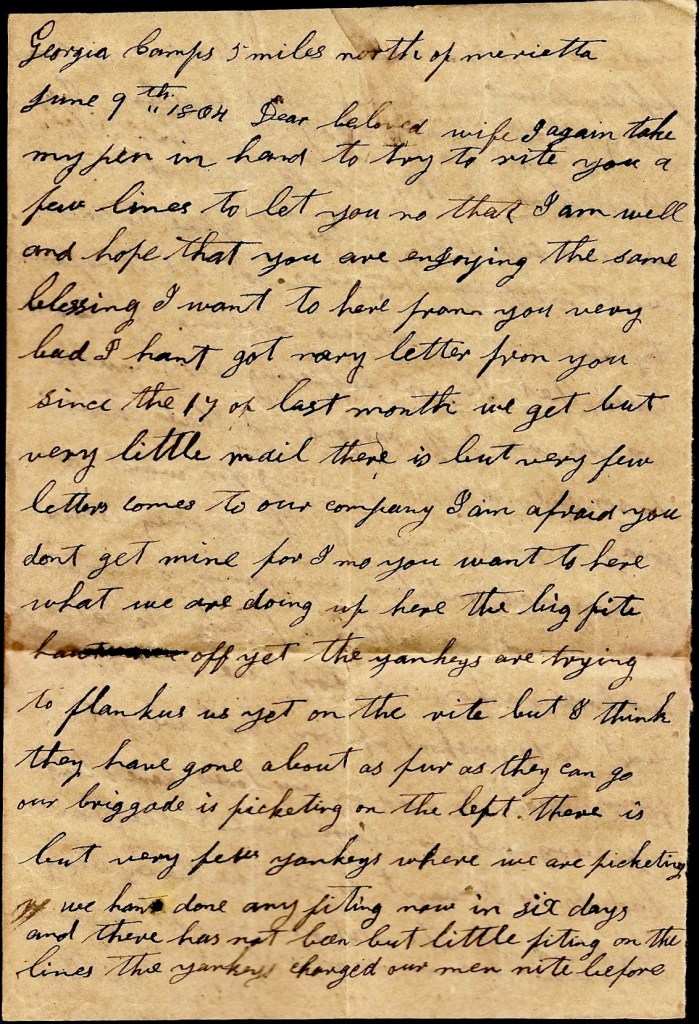 Georgia Camps 5 miles north of merietta
June 9th 1864 Dear beloved wife I again take
my pen in hand to try to rite you a
few lines to let you no that I am well
and hope that you are enjoying the same
blessing I want to here from you very
bad I hant got nary letter from you
since the 17 of last month we get but
very little mail there is but very few
letters comes to our company I am afraid you
dont get mine for I no you want to here
what we are doing up here the big fite
hant off yet the yankeys are trying
to flankus us yet on the rite but I think
they have gone about as fur as they can go
our briggade is picketing on the left. there is
but very few yankeys where we are picketing
we hant done any fiting now in six days
and there has not been but little fiting on the
lines the yankeys charged our men nite before